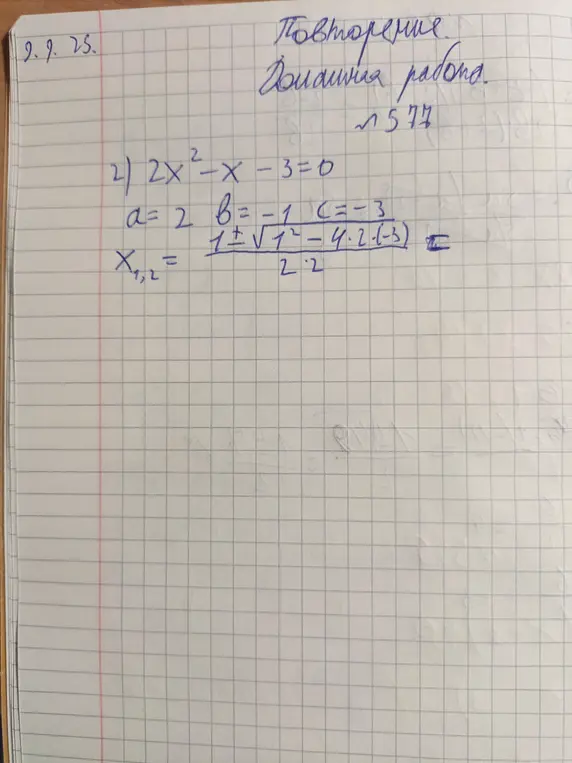 9.9.25.
Повторение.
Домашняя работа.
№577
2) 2x² - x - 3 = 0
a = 2 b = -1 c = -3
x₁,₂ = (1 ± √(1² - 4·2·(-3)))/(2·2) =